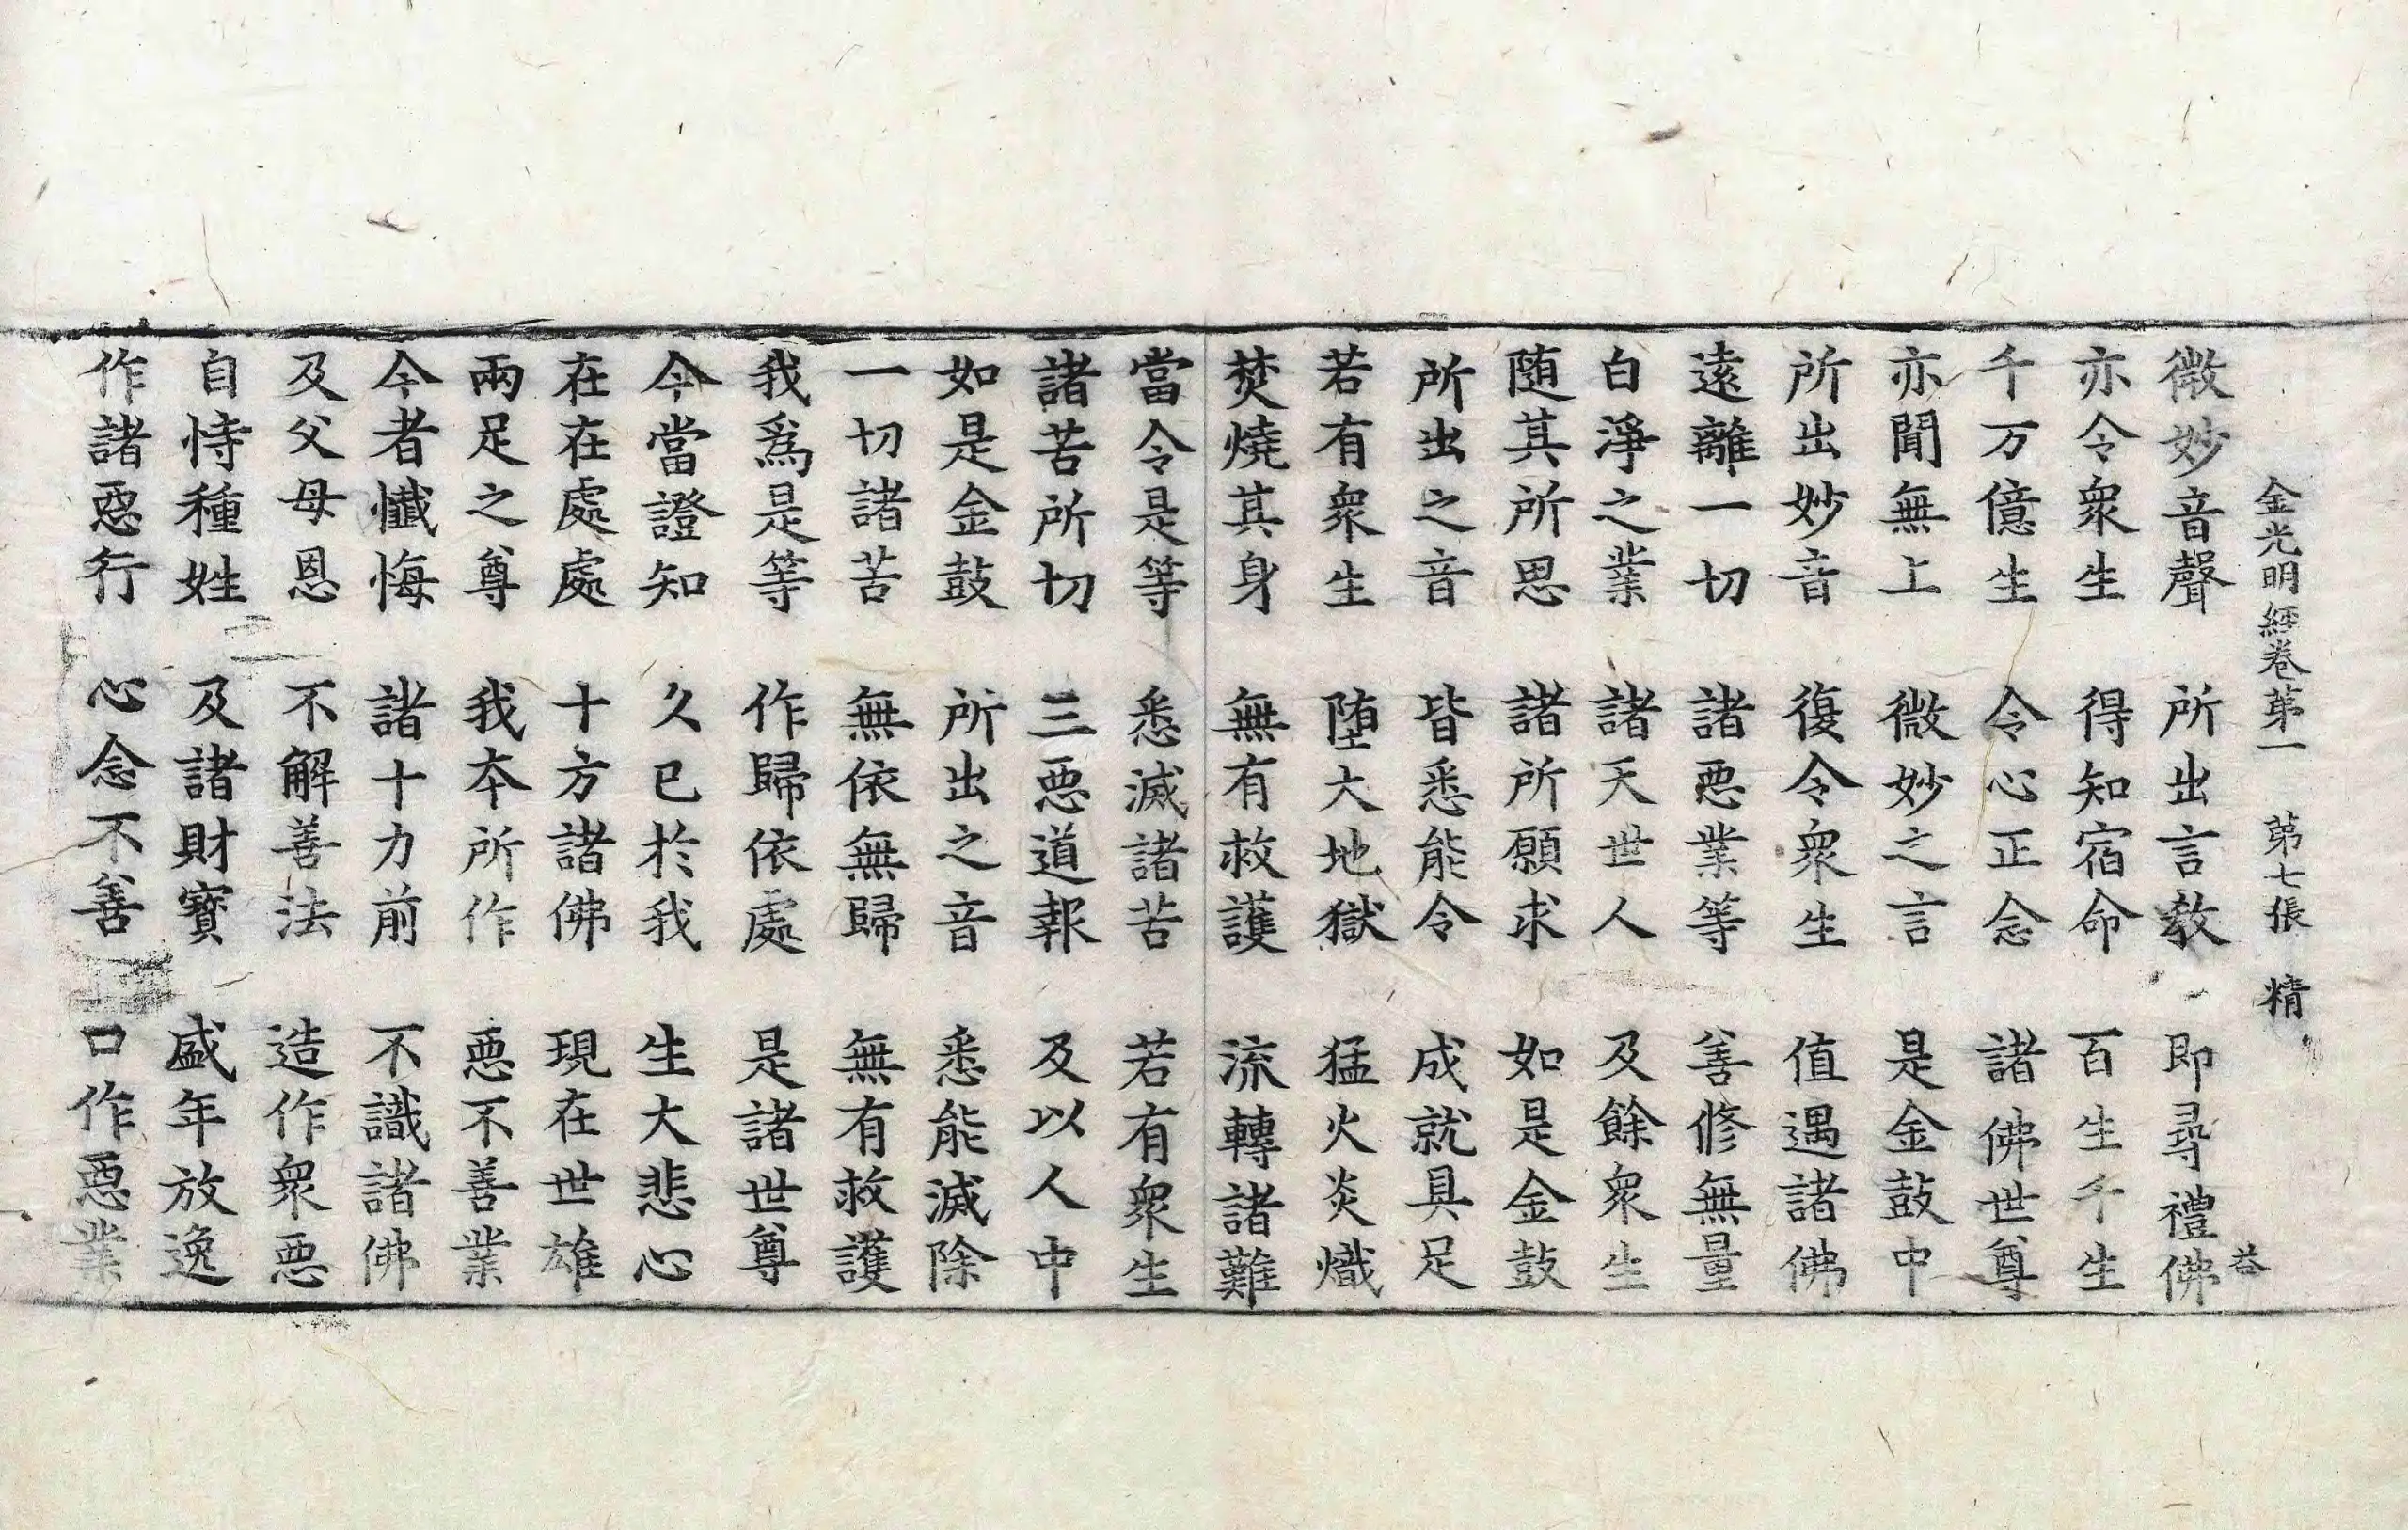 金光明經卷第一 第七張 精
微妙音聲 所出言敎 即尋禮佛
亦令衆生 得知宿命 百生千生
千万億生 令心正念 諸佛世尊
亦聞無上 微妙之言 是金鼓中
所出妙音 復令衆生 值遇諸佛
遠離一切 諸惡業等 善修無量
白淨之業 諸天世人 及餘衆生
随其所思 諸所願求 如是金鼓
所出之音 皆悉能令 成就具足
若有衆生 堕大地獄 猛火炎熾
焚燒其身 無有救護 流轉諸難
當令是等 悉滅諸苦 若有衆生
諸苦所切 三惡道報 及以人中
如是金鼓 所出之音 悉能滅除
一切諸苦 無依無歸 無有救護
我爲是等 作歸依處 是諸世尊
今當證知 久已於我 生大悲心
在在處處 十方諸佛 現在世雄
兩足之尊 我本所作 惡不善業
今者懺悔 諸十力前 不識諸佛
及父母恩 不解善法 造作衆惡
自恃種姓 及諸財寶 盛年放逸
作諸惡行 心念不善 口作惡業